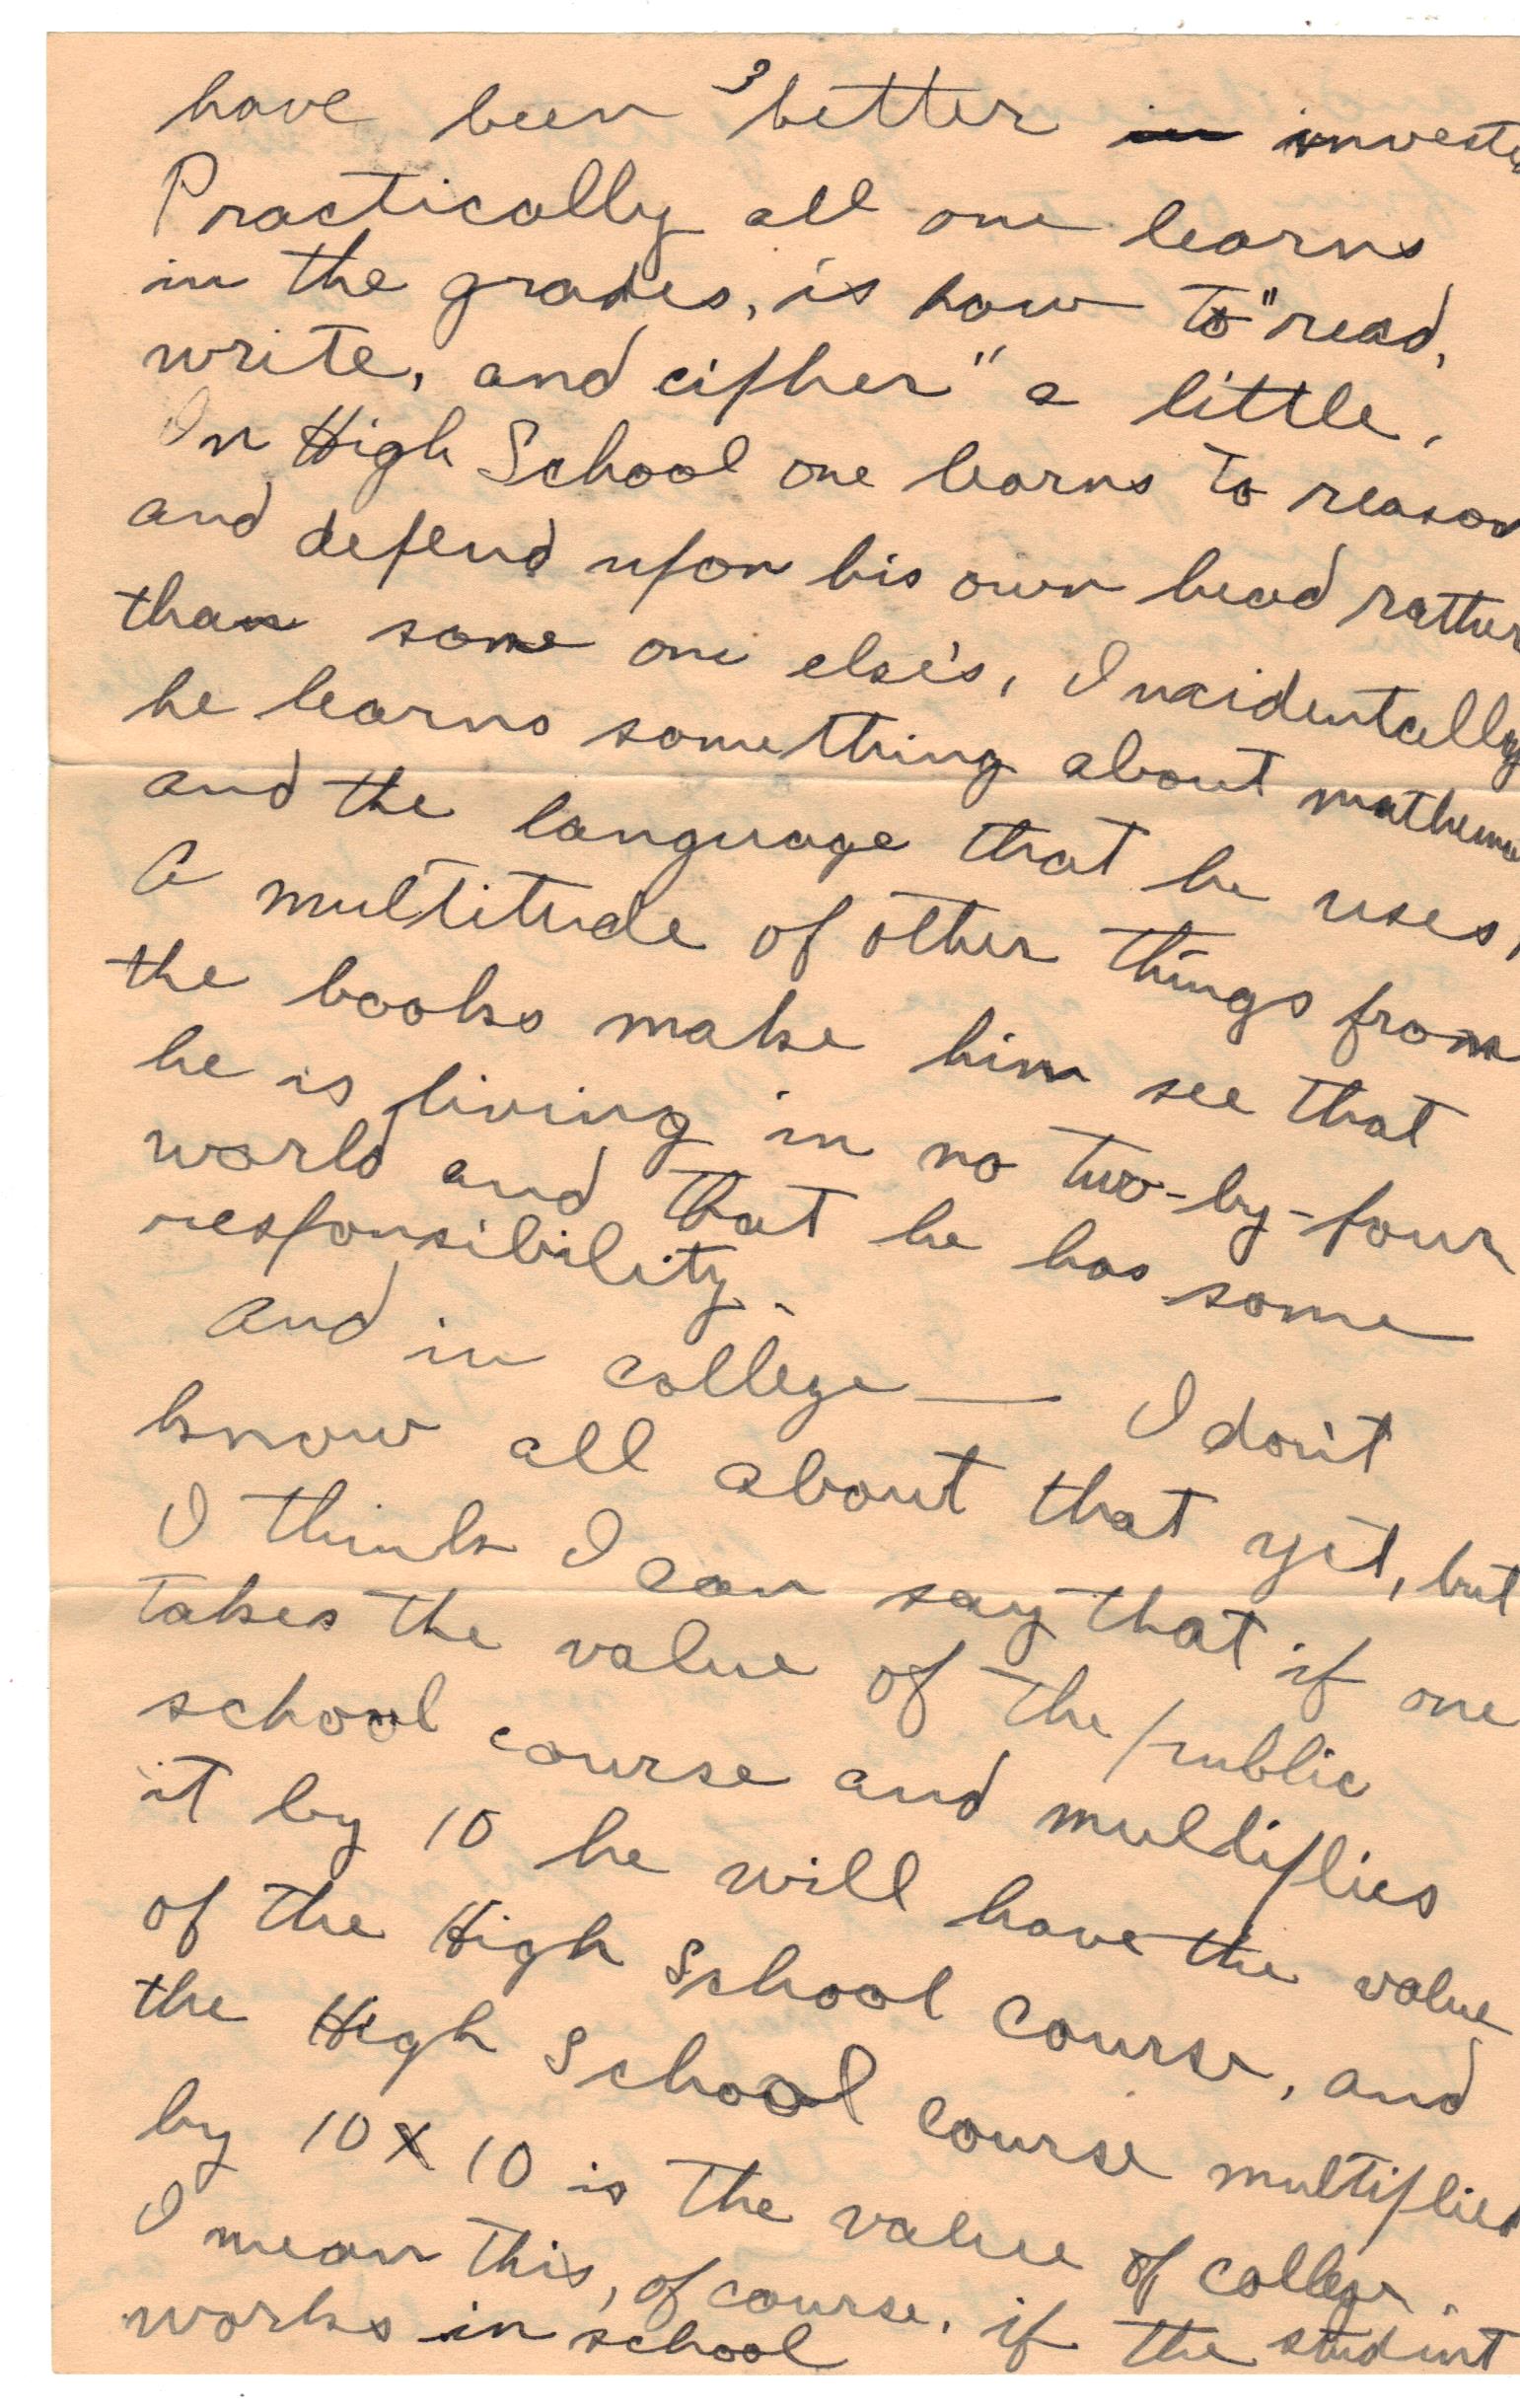 3
have been better in invested
Practically all one learns
in the grades, is how to "read,
write, and cipher" a little.
In High School one learns to reason
and depend upon his own head rather
than some one else's, Incidentally
he learns something about mathema
and the language that he uses,
A multitude of other things from
the books make him see that
he is living in no two-by-four
world and that he has some
responsibility.
And in college — I don't
know all about that yet, but
I think I can say that if one
takes the value of the public
school course and multiplies
it by 10 he will have the value
of the High School course, and
the High School course multiplied
by 10 x 10 is the value of college.
I mean this, of course, if the student
works in school